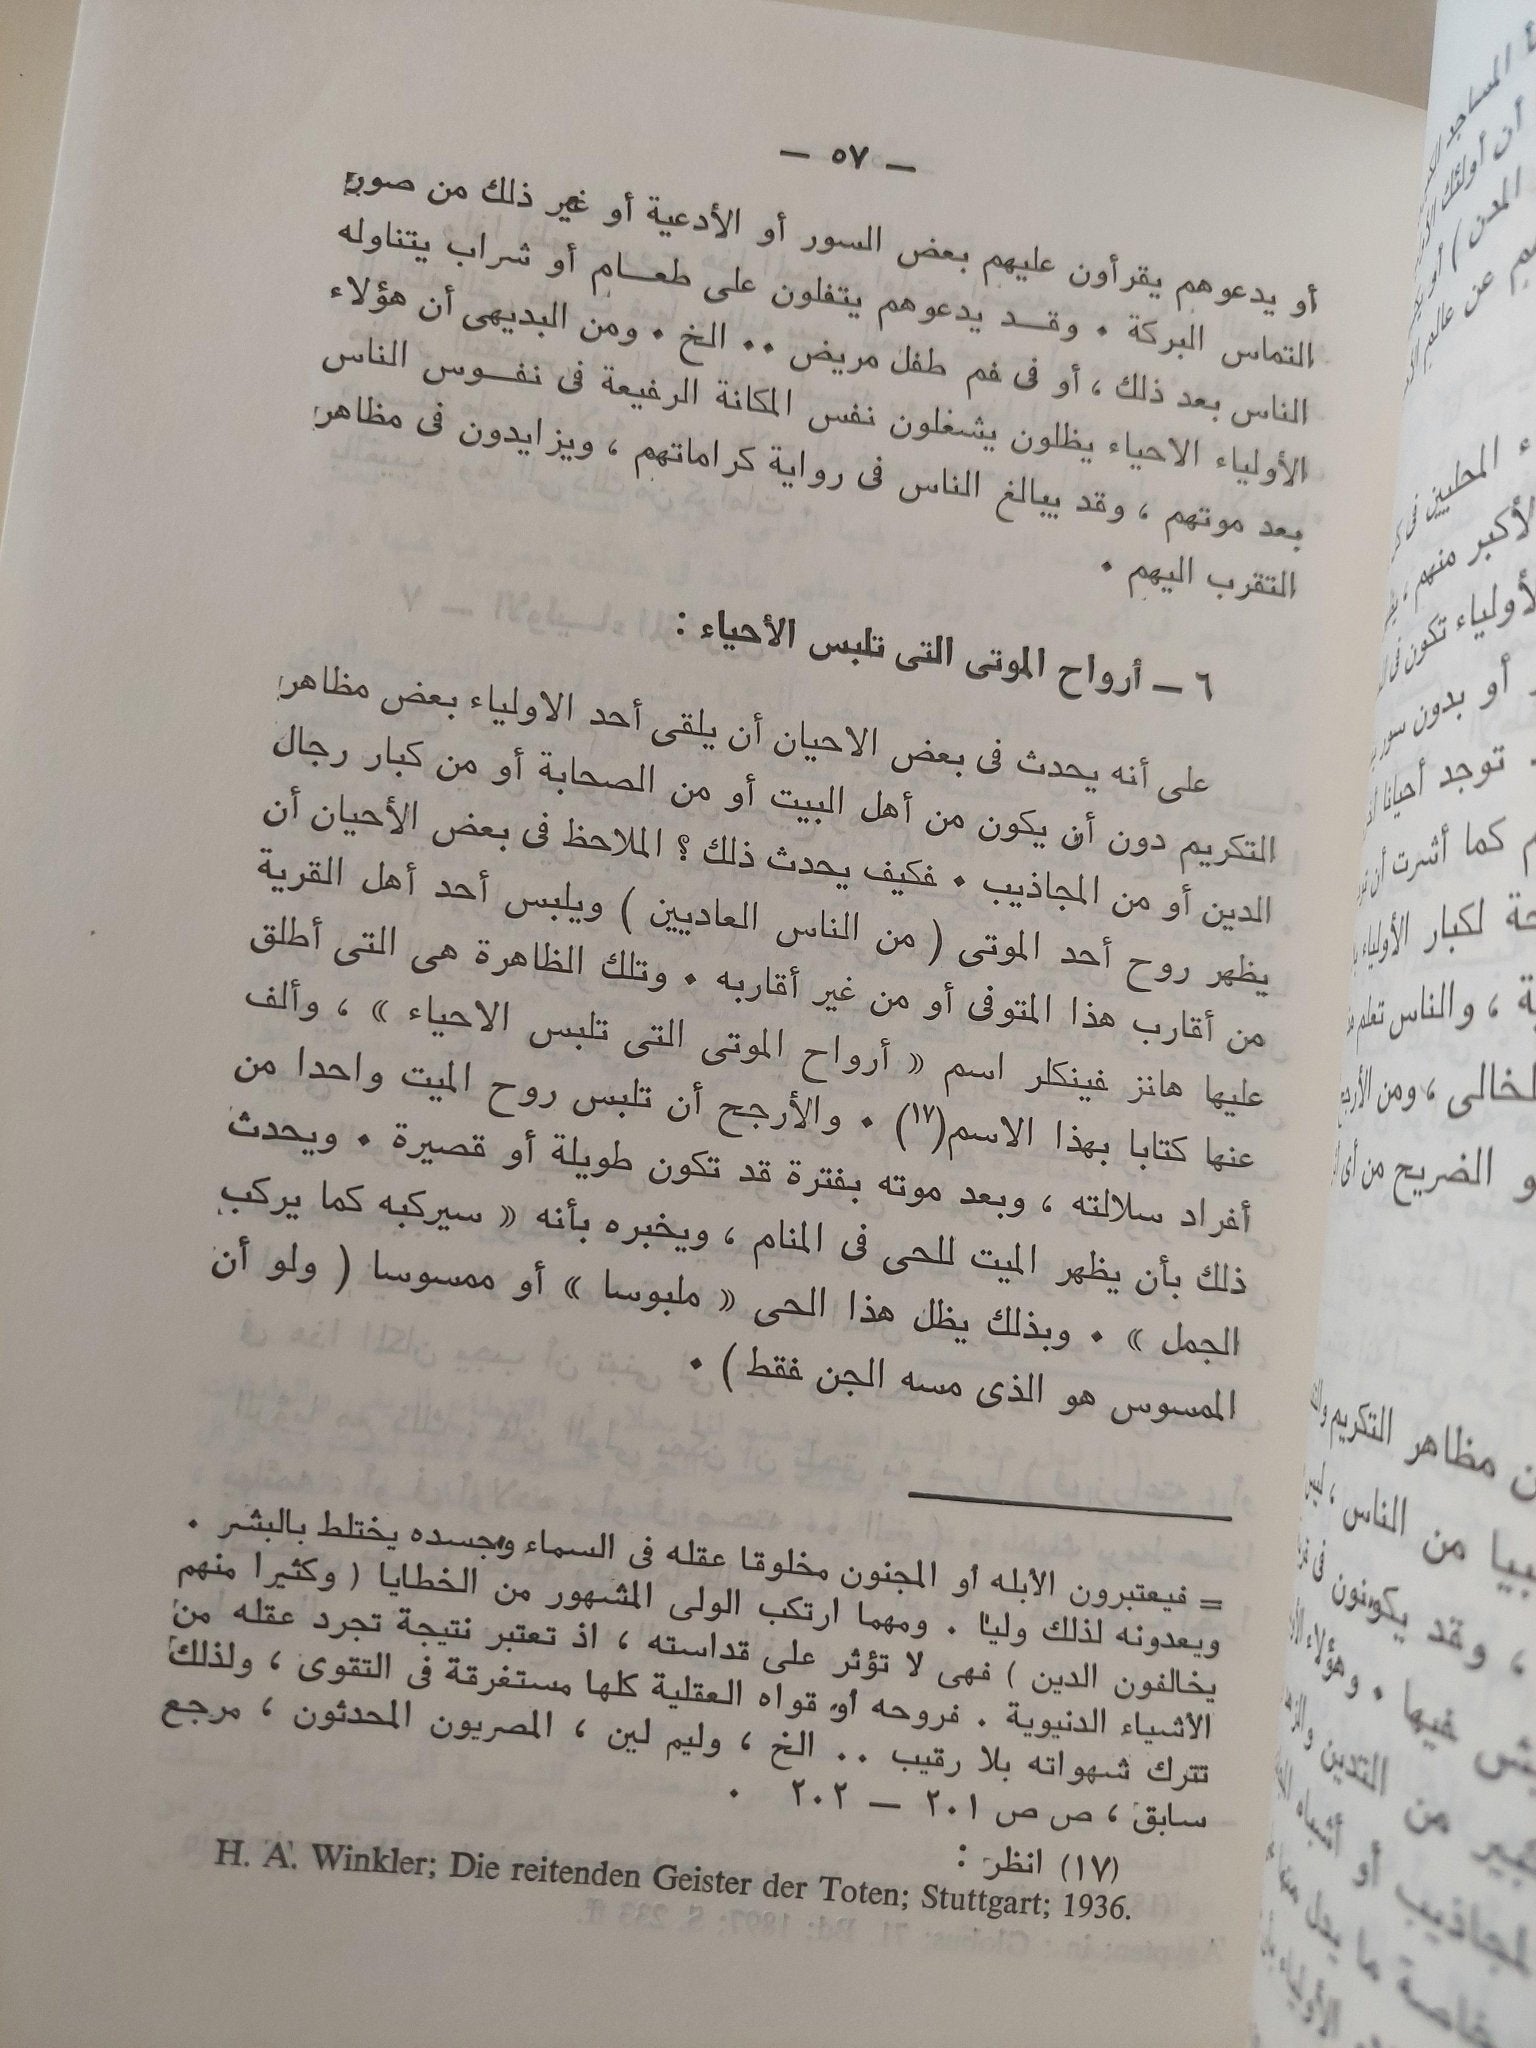 — ٥٧ —
أو يدعوهم يقرأون عليهم بعض السور أو الأدعية أو غير ذلك من صور
التماس البركة . وقد يدعوهم يتفلون على طعام أو شراب يتناوله
الناس بعد ذلك ، أو فى فم طفل مريض .. الخ . ومن البديهى أن هؤلاء
الأولياء الاحياء يظلون يشغلون نفس المكانة الرفيعة فى نفوس الناس
بعد موتهم ، وقد يبالغ الناس فى رواية كراماتهم ، ويزايدون فى مظاهر
التقرب اليهم .
٦ — أرواح الموتى التى تلبس الأحياء :
على أنه يحدث فى بعض الاحيان أن يلقى أحد الاولياء بعض مظاهر
التكريم دون أن يكون من أهل البيت أو من الصحابة أو من كبار رجال
الدين أو من المجاذيب . فكيف يحدث ذلك ؟ الملاحظ فى بعض الأحيان أن
يظهر روح أحد الموتى ( من الناس العاديين ) ويلبس أحد أهل القرية
من أقارب هذا المتوفى أو من غير أقاربه . وتلك الظاهرة هى التى أطلق
عليها هانز فينكلر اسم « أرواح الموتى التى تلبس الاحياء » ، وألف
عنها كتابا بهذا الاسم(١٧) . والأرجح أن تلبس روح الميت واحدا من
أفراد سلالته ، وبعد موته بفترة قد تكون طويلة أو قصيرة . ويحدث
ذلك بأن يظهر الميت للحى فى المنام ، ويخبره بأنه « سيركبه كما يركب
الجمل » . وبذلك يظل هذا الحى « ملبوسا » أو ممسوسا ( ولو أن
الممسوس هو الذى مسه الجن فقط ) .
= فيعتبرون الأبله أو المجنون مخلوقا عقله فى السماء وجسده يختلط بالبشر .
ويعدونه لذلك وليا . ومهما ارتكب الولى المشهور من الخطايا ( وكثيرا منهم
يخالفون الدين ) فهى لا تؤثر على قداسته ، اذ تعتبر نتيجة تجرد عقله من
الأشياء الدنيوية . فروحه أو قواه العقلية كلها مستغرقة فى التقوى ، ولذلك
تترك شهواته بلا رقيب .. الخ ، وليم لين ، المصريون المحدثون ، مرجع
سابق ، ص ص ٢٠١ — ٢٠٢ .
(١٧) انظر :
H. A. Winkler; Die reitenden Geister der Toten; Stuttgart; 1936.
المساجد
أن أولئك
المدن )
عن عالم
المحليين فى
الأكبر منهم ،
الأولياء تكون فى
أو بدون سور
توجد أحيانا
كما أشرت أن
لكبار الأولياء
، والناس تعلم
، ومن الأرجح
الضريح من أى
مظاهر التكريم
من الناس ،
، وقد يكونون فى
فيها . وهؤلاء
من التدين
أو أشباه
المجاذيب
ما يدل